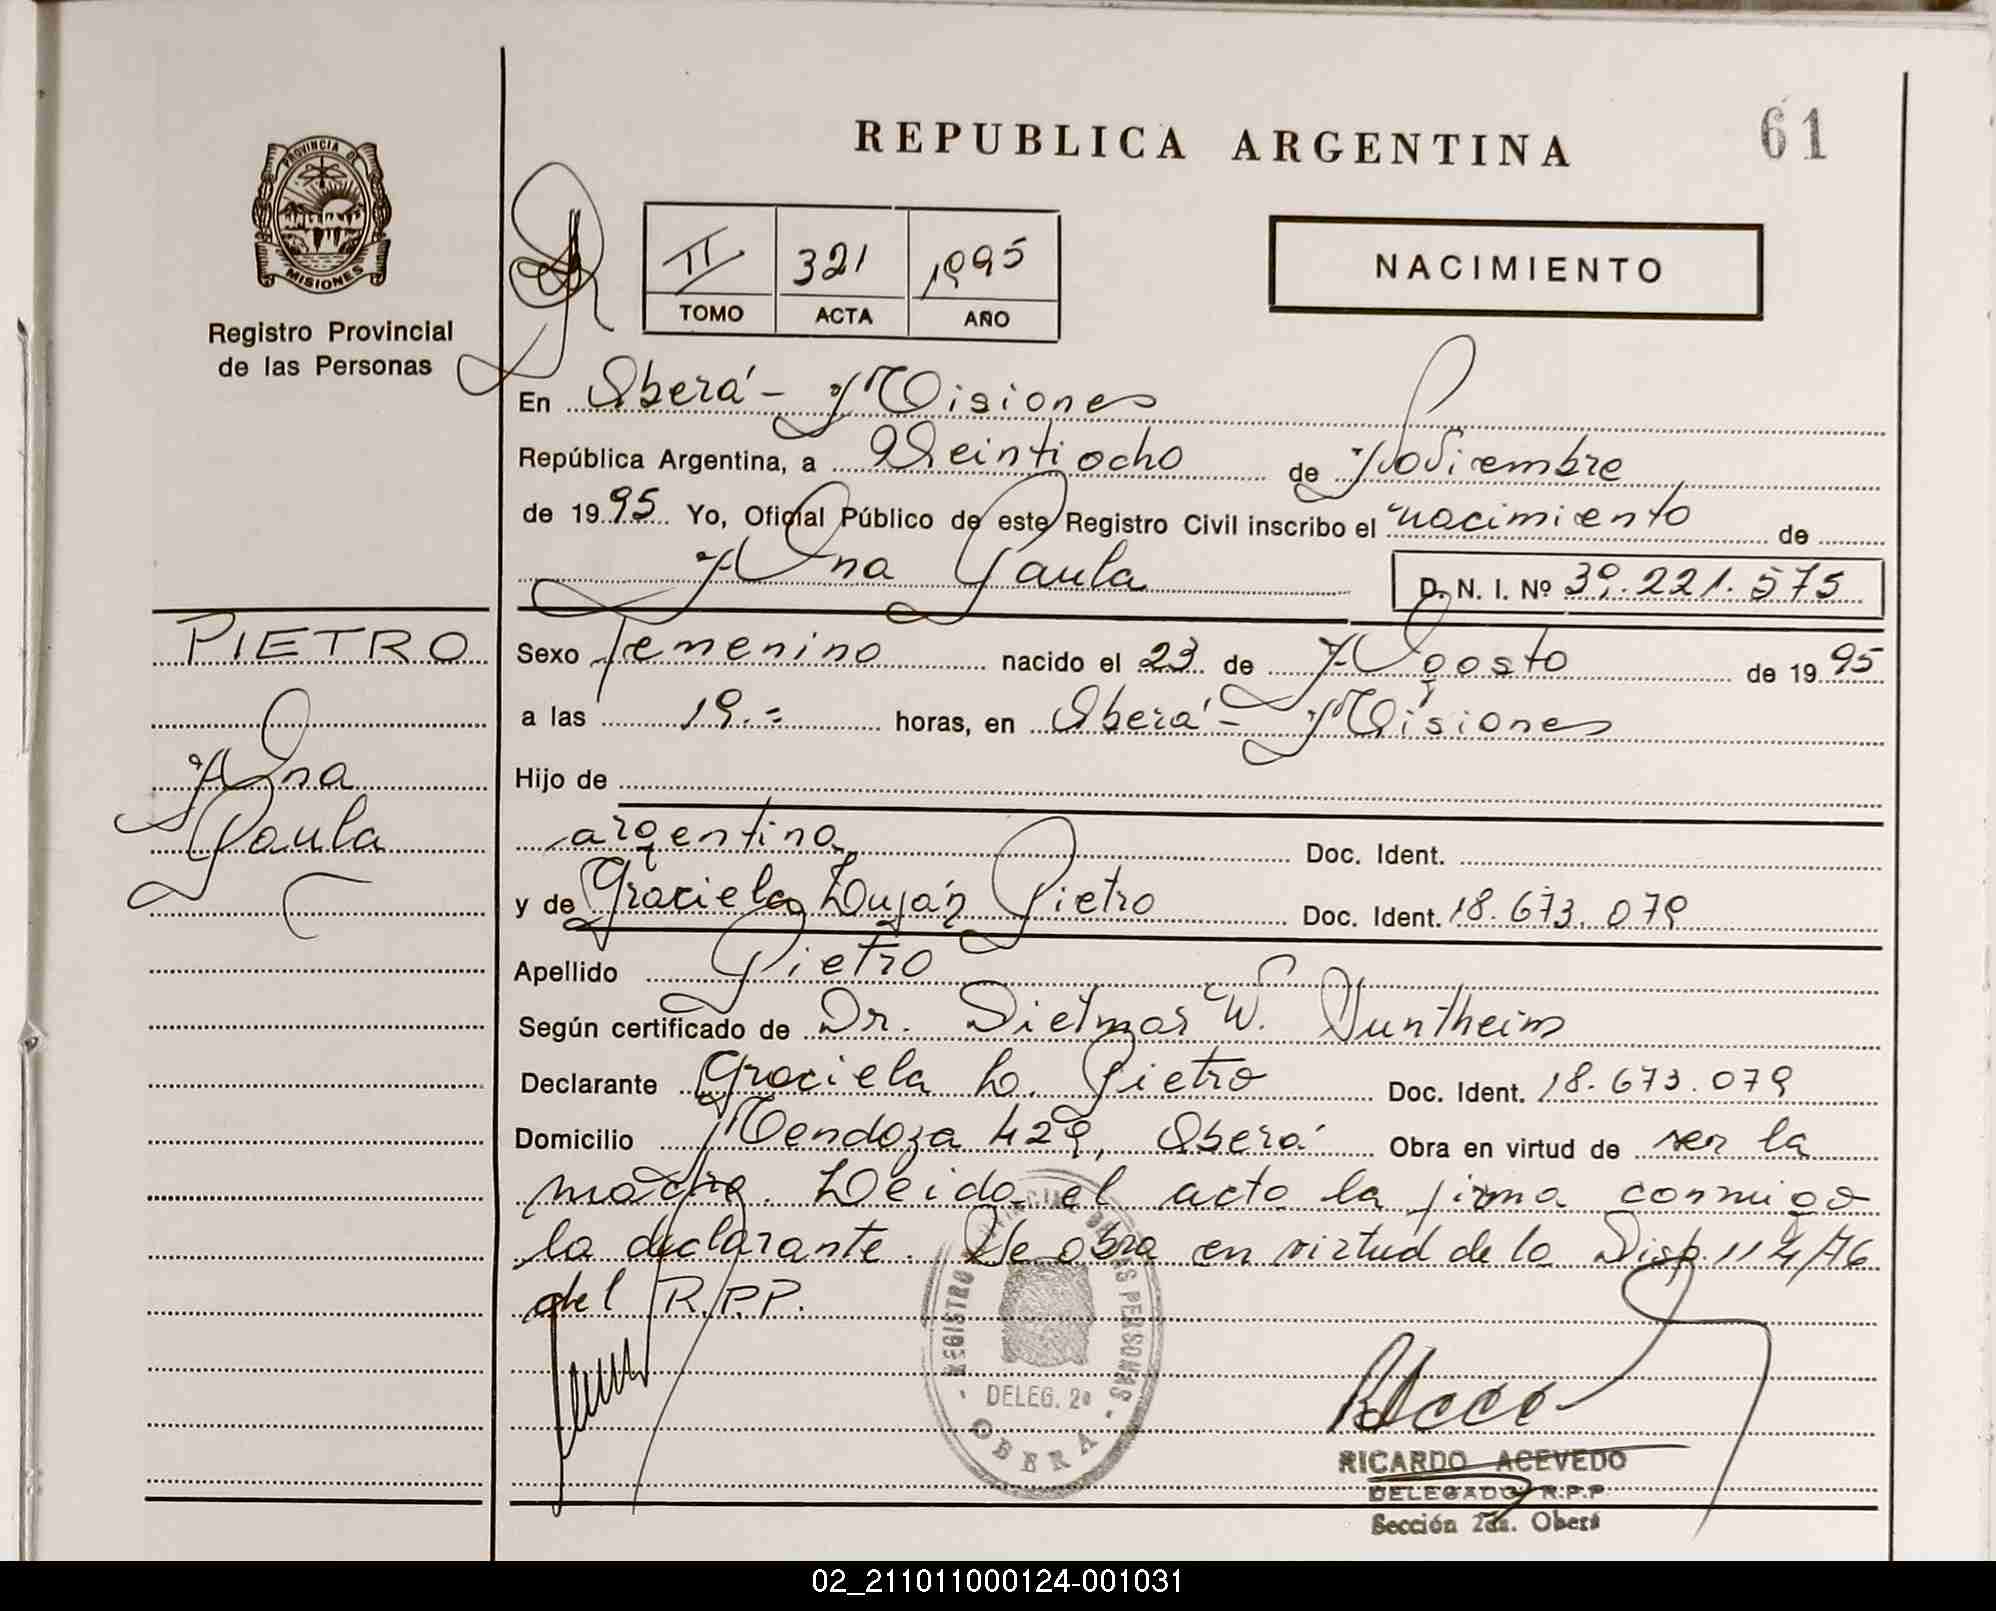 61
REPUBLICA ARGENTINA
PROVINCIA DE
MISIONES
Registro Provincial
de las Personas
II 321 1995
TOMO ACTA AÑO
NACIMIENTO
En Oberá - Misiones
República Argentina, a Veintiocho de Noviembre
de 1995 Yo, Oficial Público de este Registro Civil inscribo el nacimiento de
Ana Paula D. N. I. Nº 39.221.575
PIETRO
Ana
Paula
Sexo femenino nacido el 23 de Agosto de 1995
a las 19.= horas, en Oberá - Misiones
Hijo de
argentina Doc. Ident.
y de Graciela Luján Pietro Doc. Ident. 18.673.079
Apellido Pietro
Según certificado de Dr. Dietmar W.
Declarante Graciela L. Pietro Doc. Ident. 18.673.079
Domicilio Mendoza 429, Oberá Obra en virtud de ser la
madre. Leido el acto la firma conmigo
la declarante. Se obra en virtud de la Disp. 114/76
del R.P.P.
REGISTRO PROVINCIAL DE LAS PERSONAS
DELEG. 2º
OBERA
RICARDO ACEVEDO
DELEGADO R.P.P
Sección 2da. Oberá
02_211011000124-001031